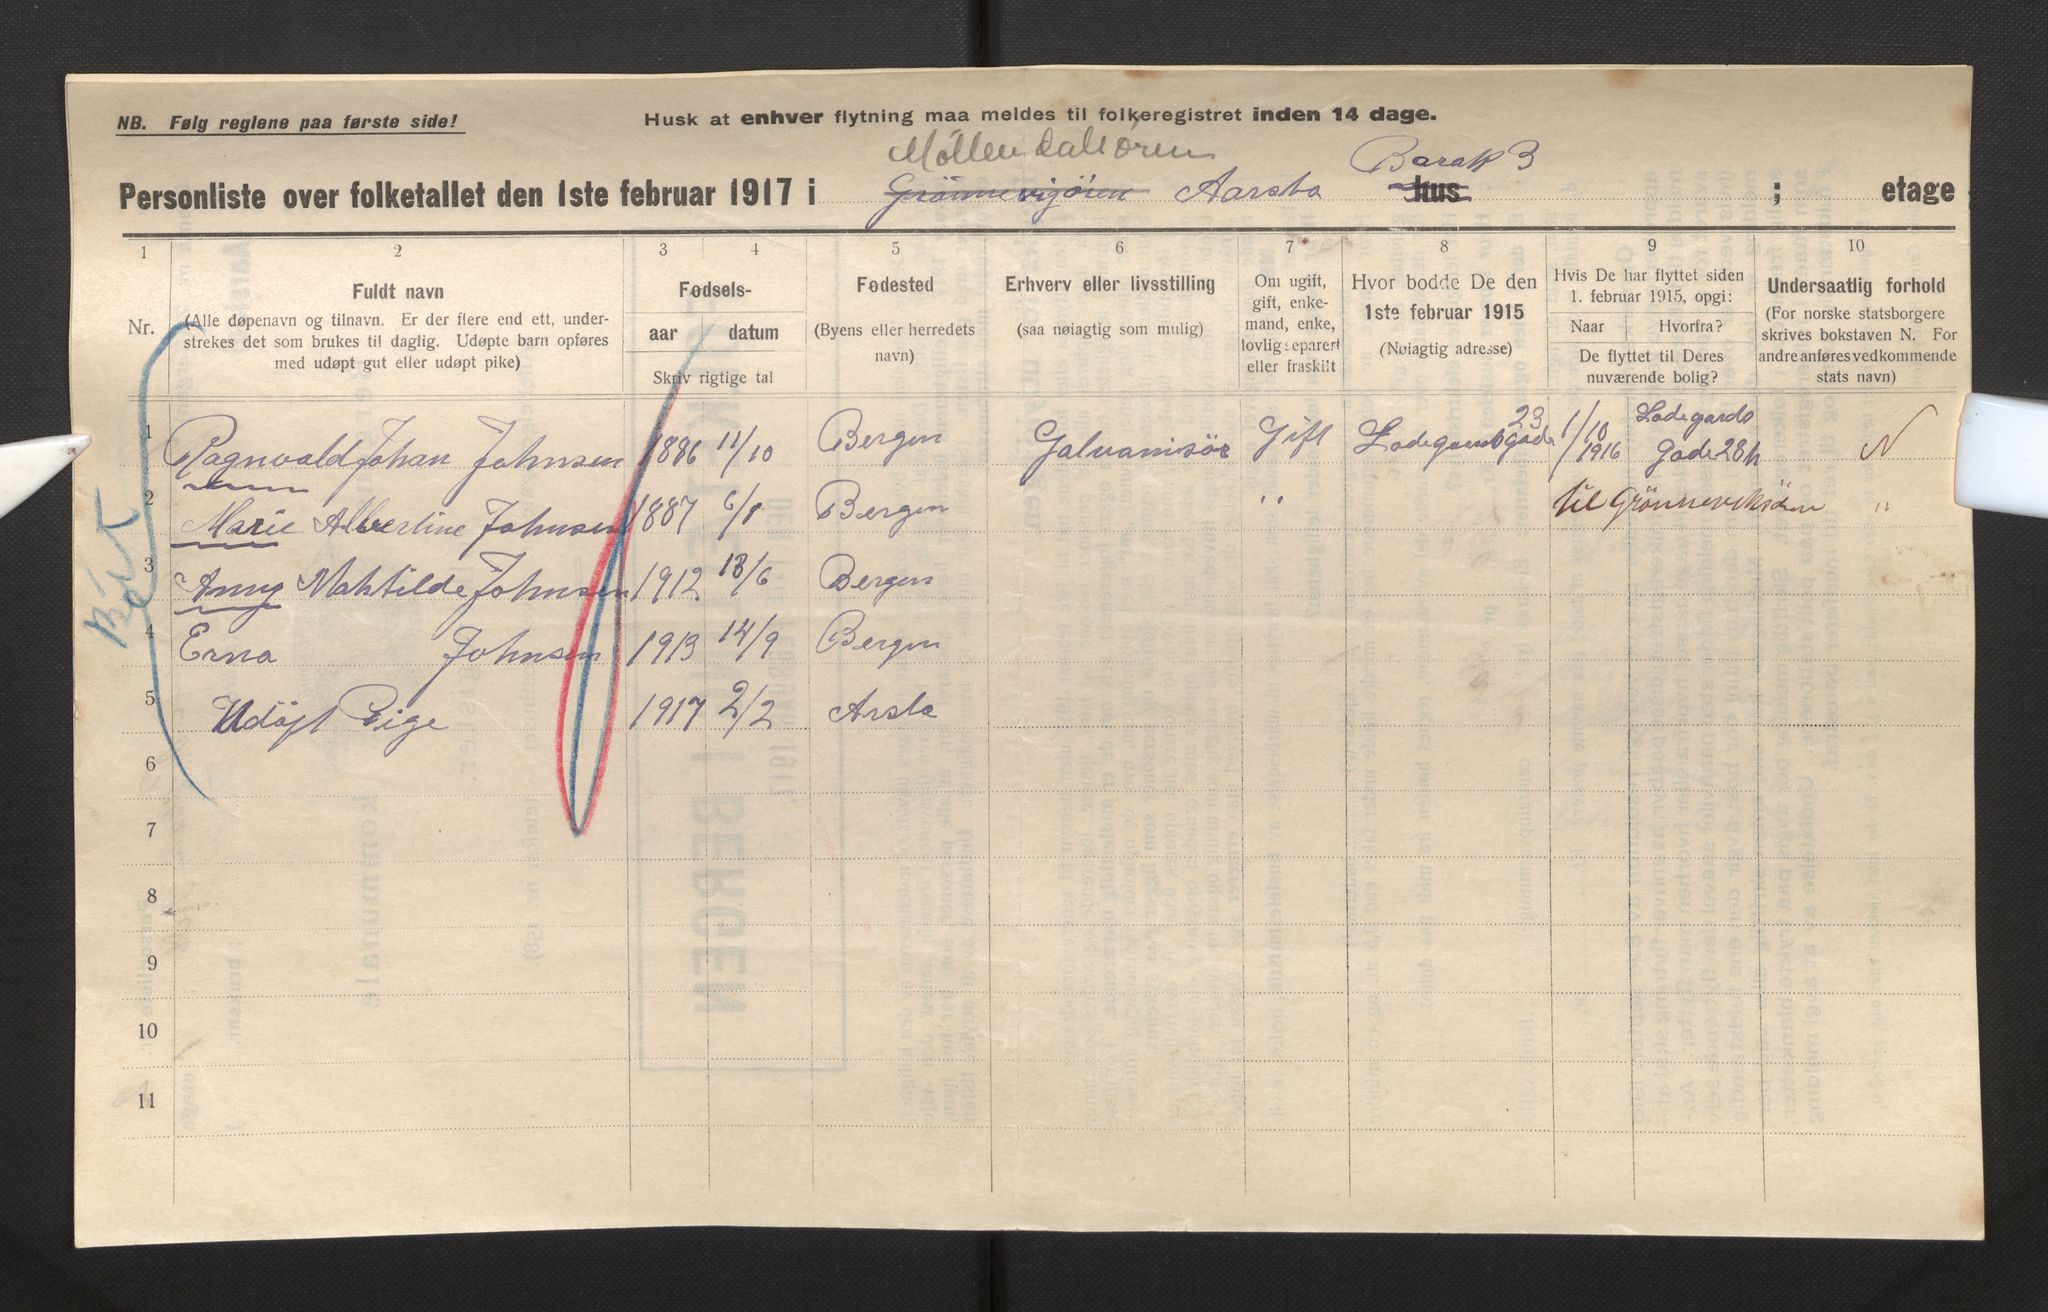 NB. Følg reglene paa første side!
Husk at enhver flytning maa meldes til folkeregistret inden 14 dage.
Möllendalsören
Barak 3
Personliste over folketallet den 1ste februar 1917 i Grönnevigören Aarsta hus ; etage
1 2 3 4 5 6 7 8 9 10
Nr.
Fuldt navn
(Alle døpenavn og tilnavn. Er der flere end ett, under-
strekes det som brukes til daglig. Udøpte barn opføres
med udøpt gut eller udøpt pike)
Fødsels-
aar datum
Skriv rigtige tal
Fødested
(Byens eller herredets
navn)
Erhverv eller livsstilling
(saa nøiagtig som mulig)
Om ugift,
gift, enke-
mand, enke,
lovlig separert
eller fraskilt
Hvor bodde De den
1ste februar 1915
(Nøiagtig adresse)
Hvis De har flyttet siden
1. februar 1915, opgi:
Naar Hvorfra?
De flyttet til Deres
nuværende bolig?
Undersaatlig forhold
(For norske statsborgere
skrives bokstaven N. For
andre anføres vedkommende
stats navn)
1 Ragnvald Johan Johnsen 1886 11/10 Bergen Galvanisör Gift Ladegaards gade 23 1/10 1916 Ladegaards Gade 28 N
2 Marie Albertine Johnsen 1887 6/8 Bergen " til Grönneviksören "
3 Anny Mahtilde Johnsen 1912 18/6 Bergen
4 Erna Johnsen 1913 14/9 Bergen
5 Udöpt Pige 1917 2/2 Arsta
6
7
8
9
10
11